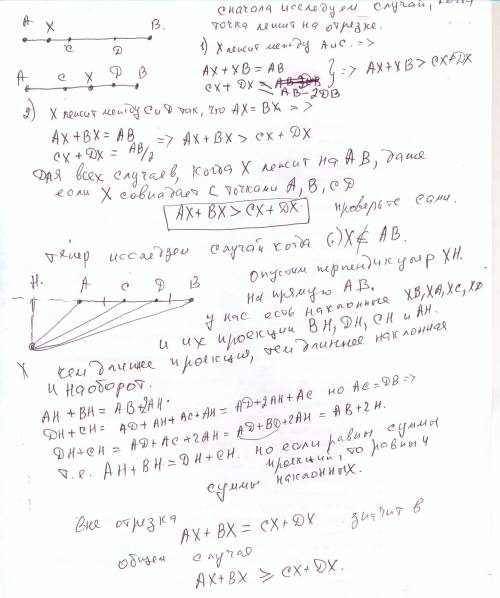 сначала исследуем случай, когда
точка лежит на отрезке.
A X B.
C D
1) X лежит между A и C. =>
AX + XB = AB
CX + DX = AB - 2DB
} => AX + XB > CX + DX
A C X D B
2) X лежит между C и D так, что AX = BX. =>
AX + BX = AB
CX + DX = AB/2
=> AX + BX > CX + DX
Для всех случаев, когда X лежит на AB, даже
если X совпадает с точками A, B, C D
AX + BX > CX + DX. проверьте сами.
Тепер исследуем случай когда (·) X ∉ AB.
H. A C D B
X
Опустим перпендикуляр XH.
на прямую AB.
у нас есть наклонные XB, XA, XC, XD
и их проекции BH, DH, CH и AH.
чем длиннее проекция, тем длиннее наклонная
и наоборот.
AH + BH = AB + 2AH.
DH + CH = AD + AH + AC + AH = AD + 2AH + AC но AC = DB =>
DH + CH = AD + AC + 2AH = AD + BD + 2AH = AB + 2H.
т.е. AH + BH = DH + CH. но если равны суммы
проекций, то равны и
суммы наклонных.
Вне отрезка AX + BX = CX + DX значит в
общем случае
AX + BX ⩾ CX + DX.